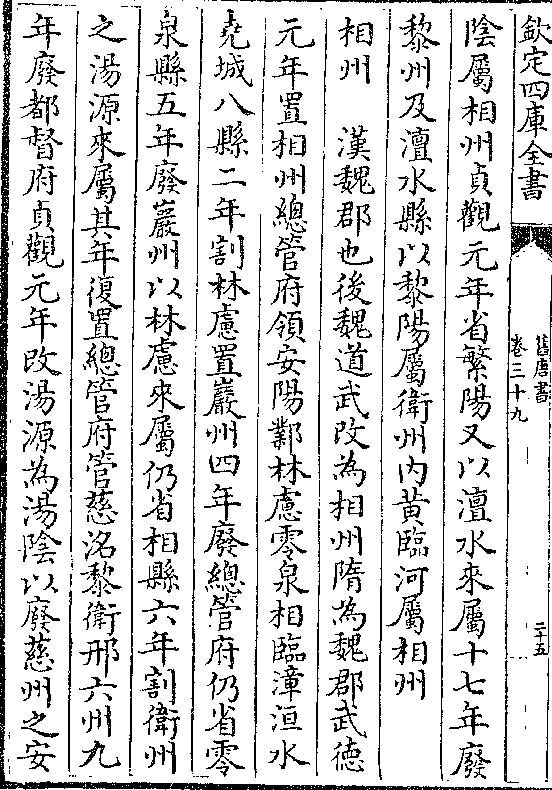 欽定四庫全書
舊唐書
卷三十九
二十五
陰屬相州貞觀元年省繁陽又以澶水來屬十七年廢
黎州及澶水縣以黎陽屬衛州内黄臨河屬相州
相州　漢魏郡也後魏道武改為相州隋為魏郡武徳
元年置相州總管府領安陽鄴林慮零泉相臨漳洹水
堯城八縣二年割林慮置巖州四年廢總管府仍省零
泉縣五年廢巖州以林慮來屬仍省相縣六年割衛州
之湯源來屬其年復置總管府管慈洺黎衛邢六州九
年廢都督府貞觀元年改湯源為湯陰以廢慈州之安